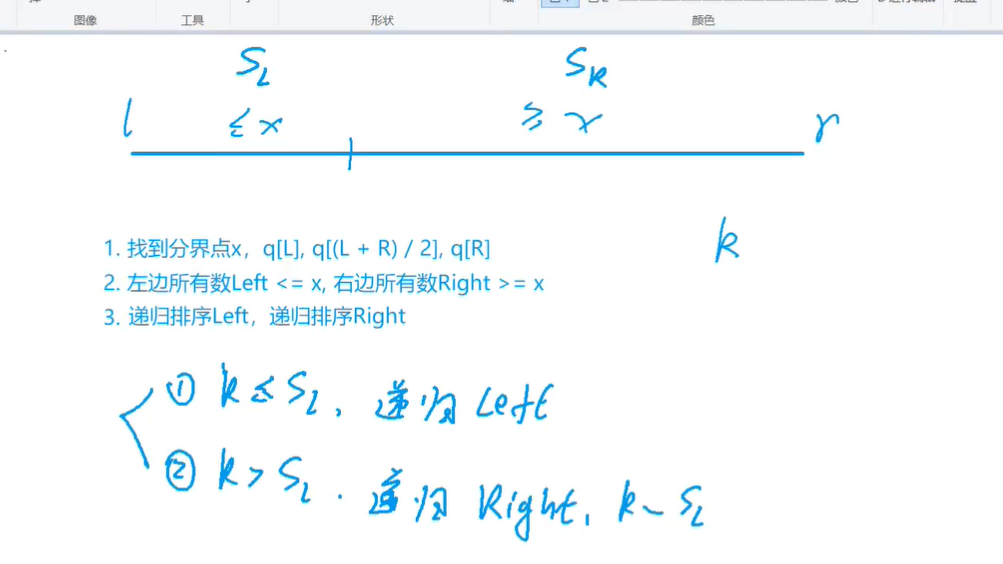 图像 工具 形状 颜色
S_L S_R
l ≤ x ≥ x r
k
1. 找到分界点x，q[L], q[(L + R) / 2], q[R]
2. 左边所有数Left <= x, 右边所有数Right >= x
3. 递归排序Left，递归排序Right
① k ≤ S_L, 递归 Left
② k > S_L. 递归 Right, k - S_L